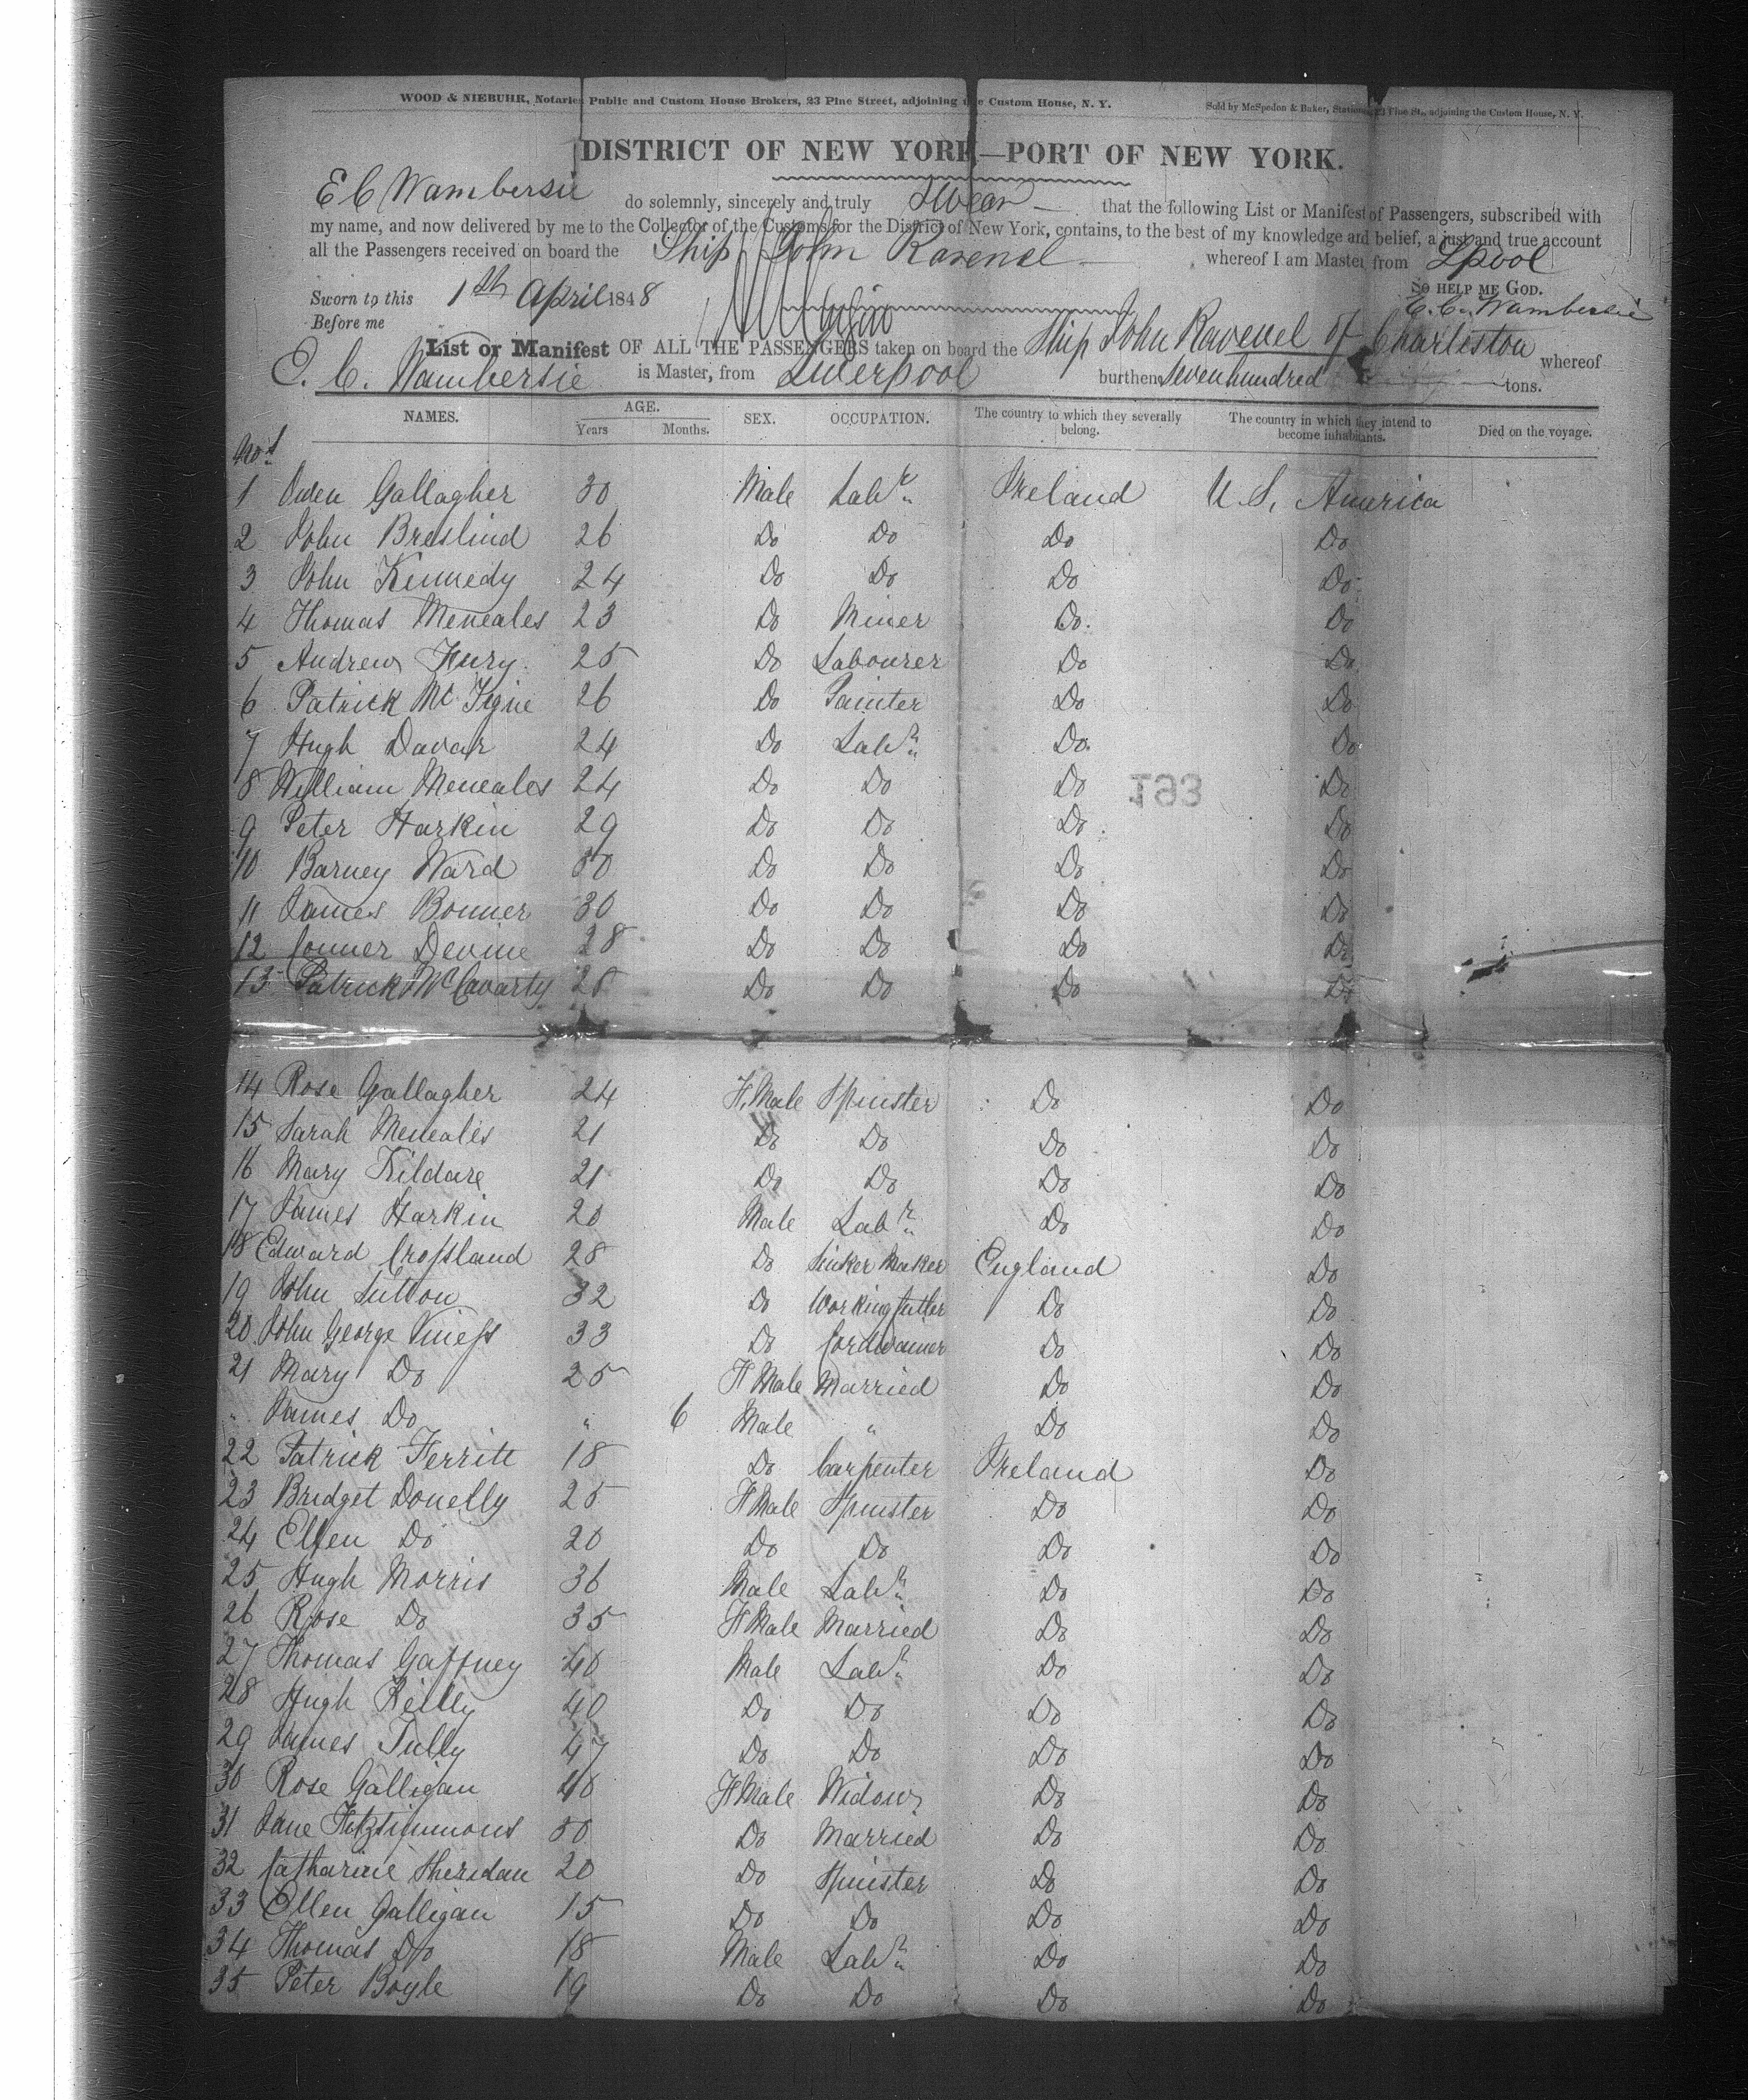 WOOD & NIEBUHR, Notaries Public and Custom House Brokers, 23 Pine Street, adjoining the Custom House, N. Y.
Sold by McSpedon & Baker, Stationers, 23 Pine St., adjoining the Custom House, N. Y.
DISTRICT OF NEW YORK—PORT OF NEW YORK.
E C Wambersie do solemnly, sincerely and truly Swear that the following List or Manifest of Passengers, subscribed with
my name, and now delivered by me to the Collector of the Customs for the District of New York, contains, to the best of my knowledge and belief, a just and true account
all the Passengers received on board the Ship John Ravenel whereof I am Master from Lpool
Sworn to this 1th April 1848 SO HELP ME GOD.
Before me E. C. Wambersie
List or Manifest OF ALL THE PASSENGERS taken on board the Ship John Ravenel of Charleston whereof
E. C. Wambersie is Master, from Liverpool burthen Seven hundred tons.
NAMES. AGE. Years Months. SEX. OCCUPATION. The country to which they severally belong. The country in which they intend to become inhabitants. Died on the voyage.
No.
1 Owen Gallagher 30 Male Labr Ireland U. S. America
2 John Breslind 26 Do Do Do Do
3 John Kennedy 24 Do Do Do Do
4 Thomas Meneales 23 Do Miner Do Do
5 Andrew Fury 25 Do Labourer Do Do
6 Patrick Mc Tigue 26 Do Painter Do Do
7 Hugh Davar 24 Do Labr Do Do
8 William Meneales 24 Do Do Do Do
193
9 Peter Harkin 29 Do Do Do Do
10 Barney Ward 30 Do Do Do Do
11 James Bonner 30 Do Do Do Do
12 Conner Devine 28 Do Do Do Do
13 Patrick McCavarty 28 Do Do Do Do
14 Rose Gallagher 24 F. Male Spinster Do Do
15 Sarah Meneales 21 Do Do Do Do
16 Mary Kildare 21 Do Do Do Do
17 James Harkin 20 Male Labr Do Do
18 Edward Crossland 28 Do Sinker Maker England Do
19 John Sutton 32 Do Working Cutler Do Do
20 John George Viness 33 Do Cordwainer Do Do
21 Mary Do 25 F Male Married Do Do
" James Do " 6 Male " Do Do
22 Patrick Ferritt 18 Do Carpenter Ireland Do
23 Bridget Donelly 25 F Male Spinster Do Do
24 Ellen Do 20 Do Do Do Do
25 Hugh Morris 36 Male Labr Do Do
26 Rose Do 35 F Male Married Do Do
27 Thomas Gaffney 40 Male Labr Do Do
28 Hugh Reilly 40 Do Do Do Do
29 James Tully 47 Do Do Do Do
30 Rose Galligan 40 F Male Widow Do Do
31 Jane Fitzsimmons 50 Do Married Do Do
32 Catharine Sheridan 20 Do Spinster Do Do
33 Ellen Galligan 15 Do Do Do Do
34 Thomas Do 18 Male Labr Do Do
35 Peter Boyle 19 Do Do Do Do